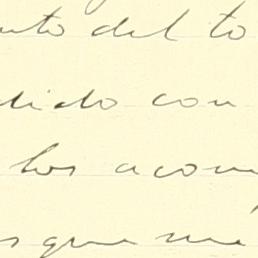 nto del to
dido con
los acom
s que me